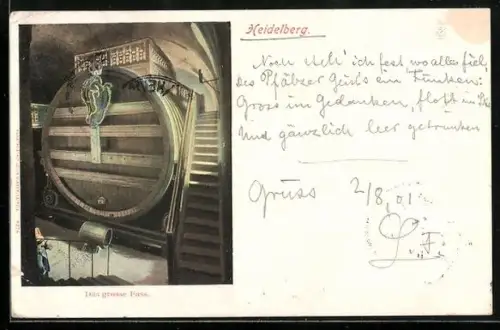 Heidelberg.
Noch steh' ich fest wo alles fiel,
des Pfälzer Geists ein Funken:
Gross im Gedanken, flott im
Und gänzlich leer getrunken
Gruss 2/8.01
L. F.
Das grosse Fass.